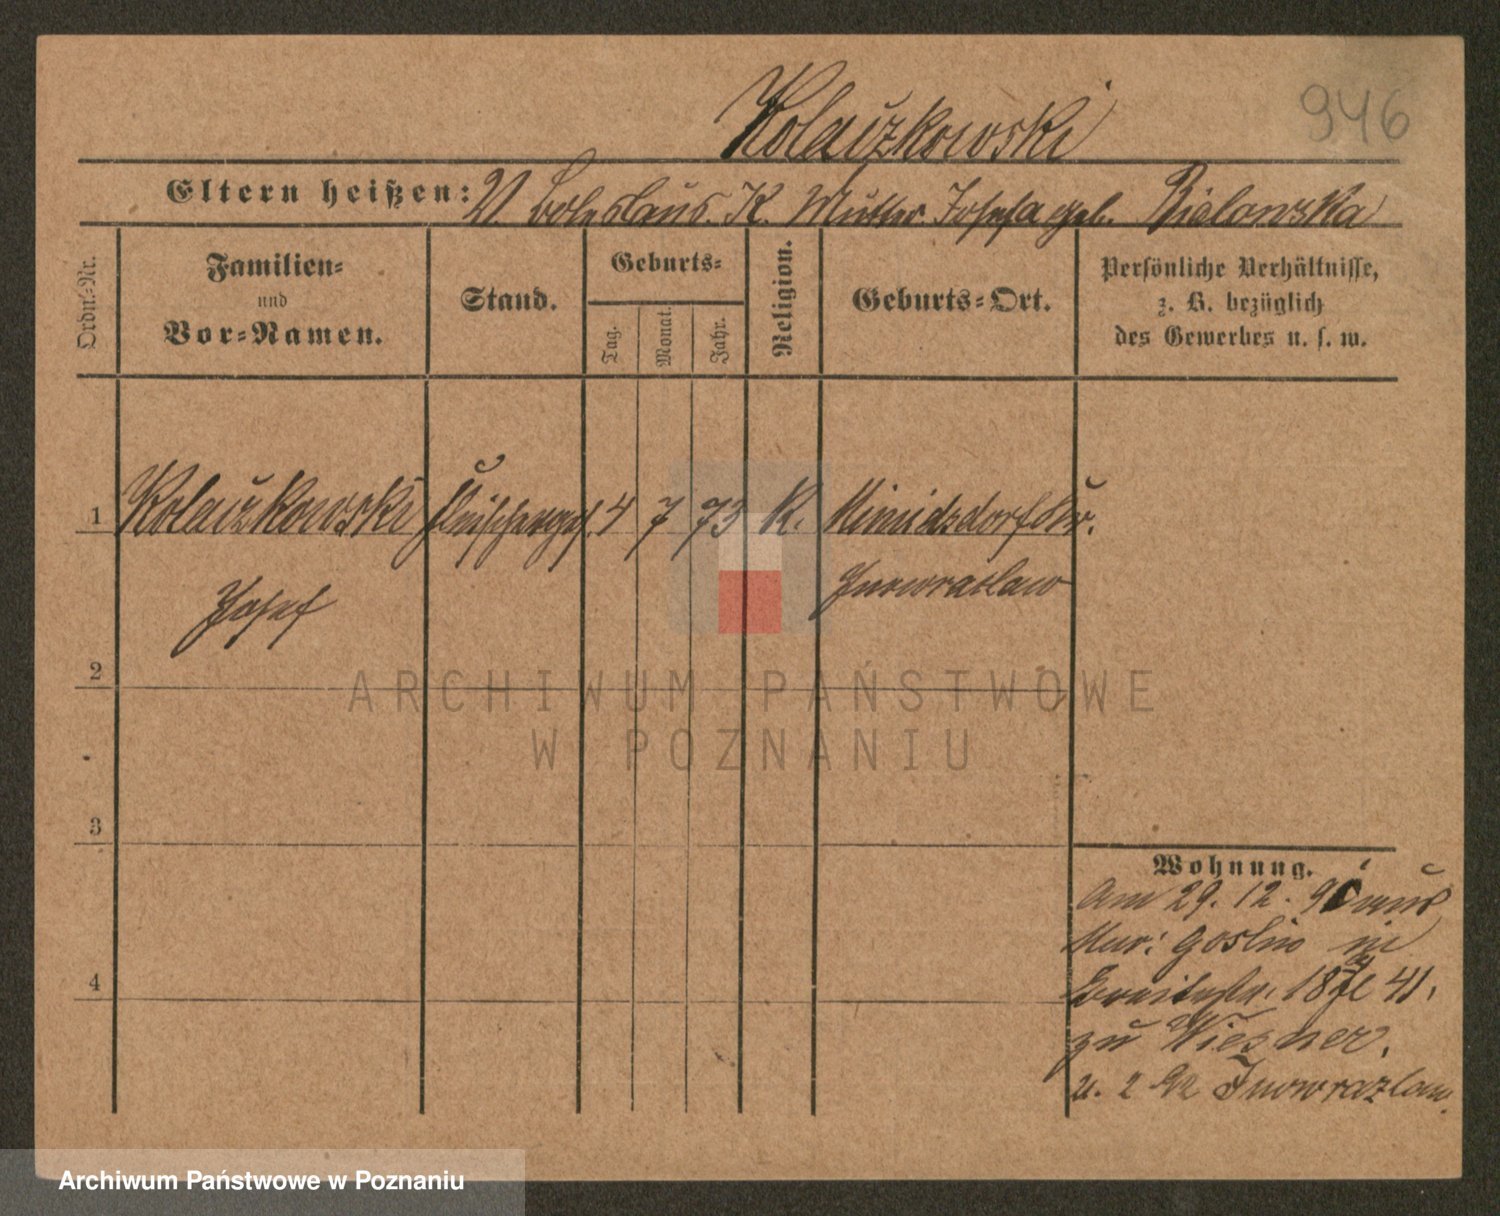 946
Kolaczkowski
Eltern heißen: V. Boleslaus K. Mutter Josefa geb. Bielawska
Ordn.-Nr.
Familien-
und
Vor-Namen.
Stand.
Geburts-
Tag.
Monat.
Jahr.
Religion.
Geburts-Ort.
Persönliche Verhältnisse,
z. B. bezüglich
des Gewerbes u. s. w.
1 Kolaczkowski Fleischerges. 4 7 73 K.
Josef
Inowraclaw
2
3
4
Wohnung.
Am 29. 12. 9 aus
Mur: Goslin in
Breitestr. 18 41.
zu Wiesner.
u. 2 Inowrazlaw.
ARCHIWUM PAŃSTWOWE
W POZNANIU
Archiwum Państwowe w Poznaniu